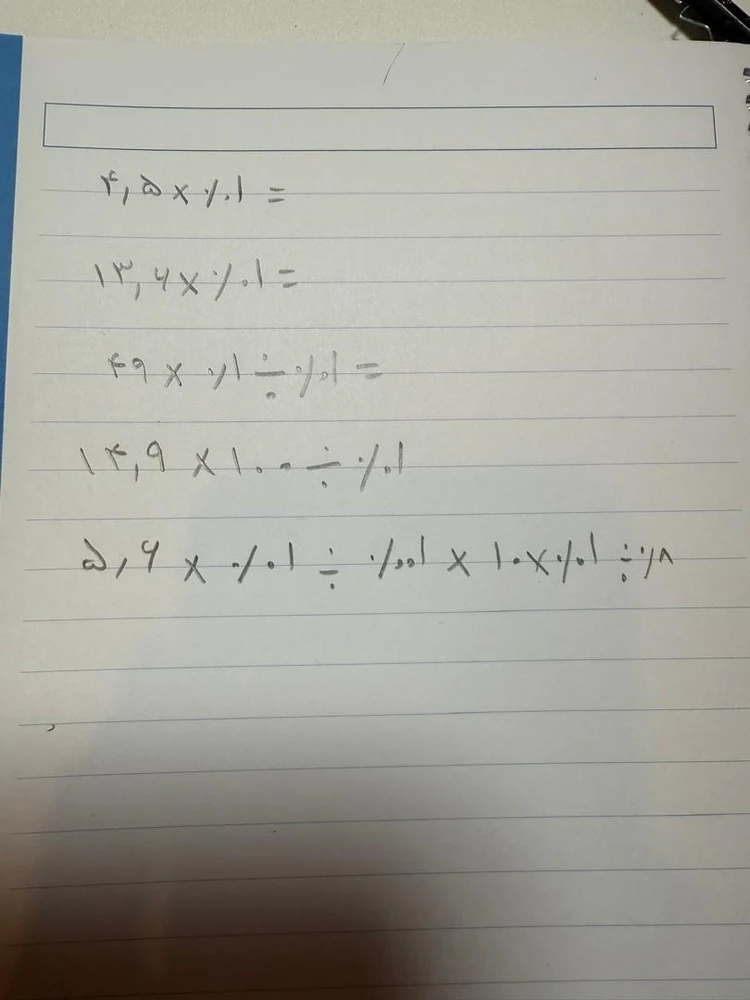 ۴٫۵ × ۰٫۰۱ =
۱۳٫۶ × ۰٫۰۱ =
۴۹ × ۰٫۱ ÷ ۰٫۰۱ =
۱۴٫۹ × ۱۰۰ ÷ ۰٫۰۱
۵٫۶ × ۰٫۰۱ ÷ ۰٫۰۰۱ × ۱۰ × ۰٫۰۱ ÷ ۰٫۸